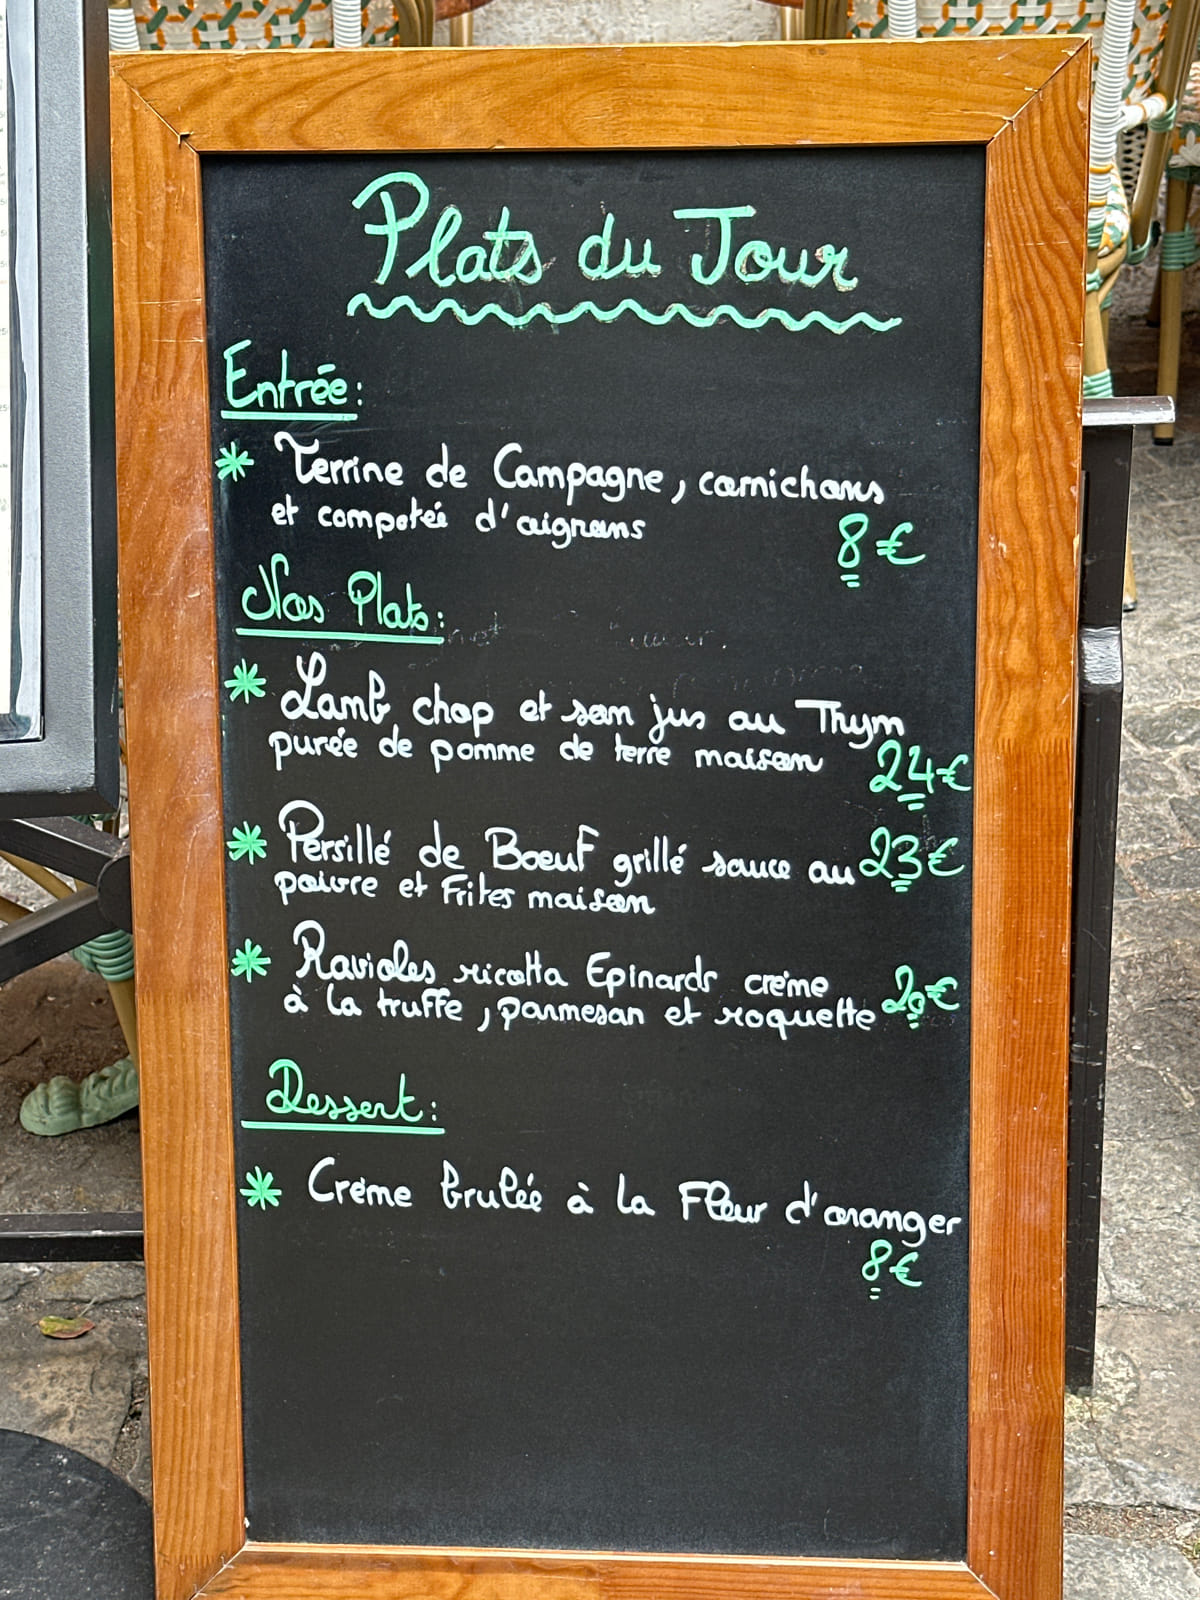 Plats du Jour
Entrée:
* Terrine de Campagne, cornichons
et compotée d'oignons
8€
Nos Plats:
* Lamb chop et son jus au Thym
purée de pomme de terre maison 24€
* Persillé de Bœuf grillé sauce au 23€
poivre et Frites maison
* Ravioles ricotta Epinards crème
à la truffe, parmesan et roquette 20€
Dessert:
* Crème brulée à la Fleur d'oranger
8€